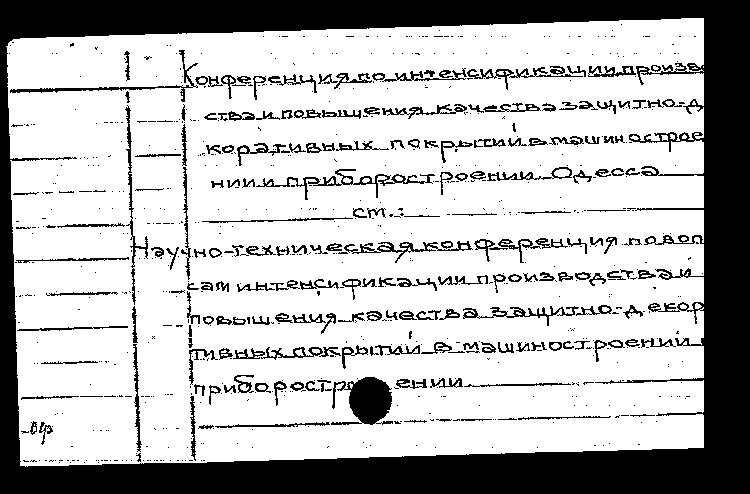 Конференция по интенсификации произво
ства и повышения качества защитно-д
коративных покрытий в машинострое
нии и приборостроении. Одесса
см.:
Научно-техническая конференция по воп
сам интенсификации производства и
повышения качества защитно-декор
тивных покрытий в машиностроении
приборостроении.